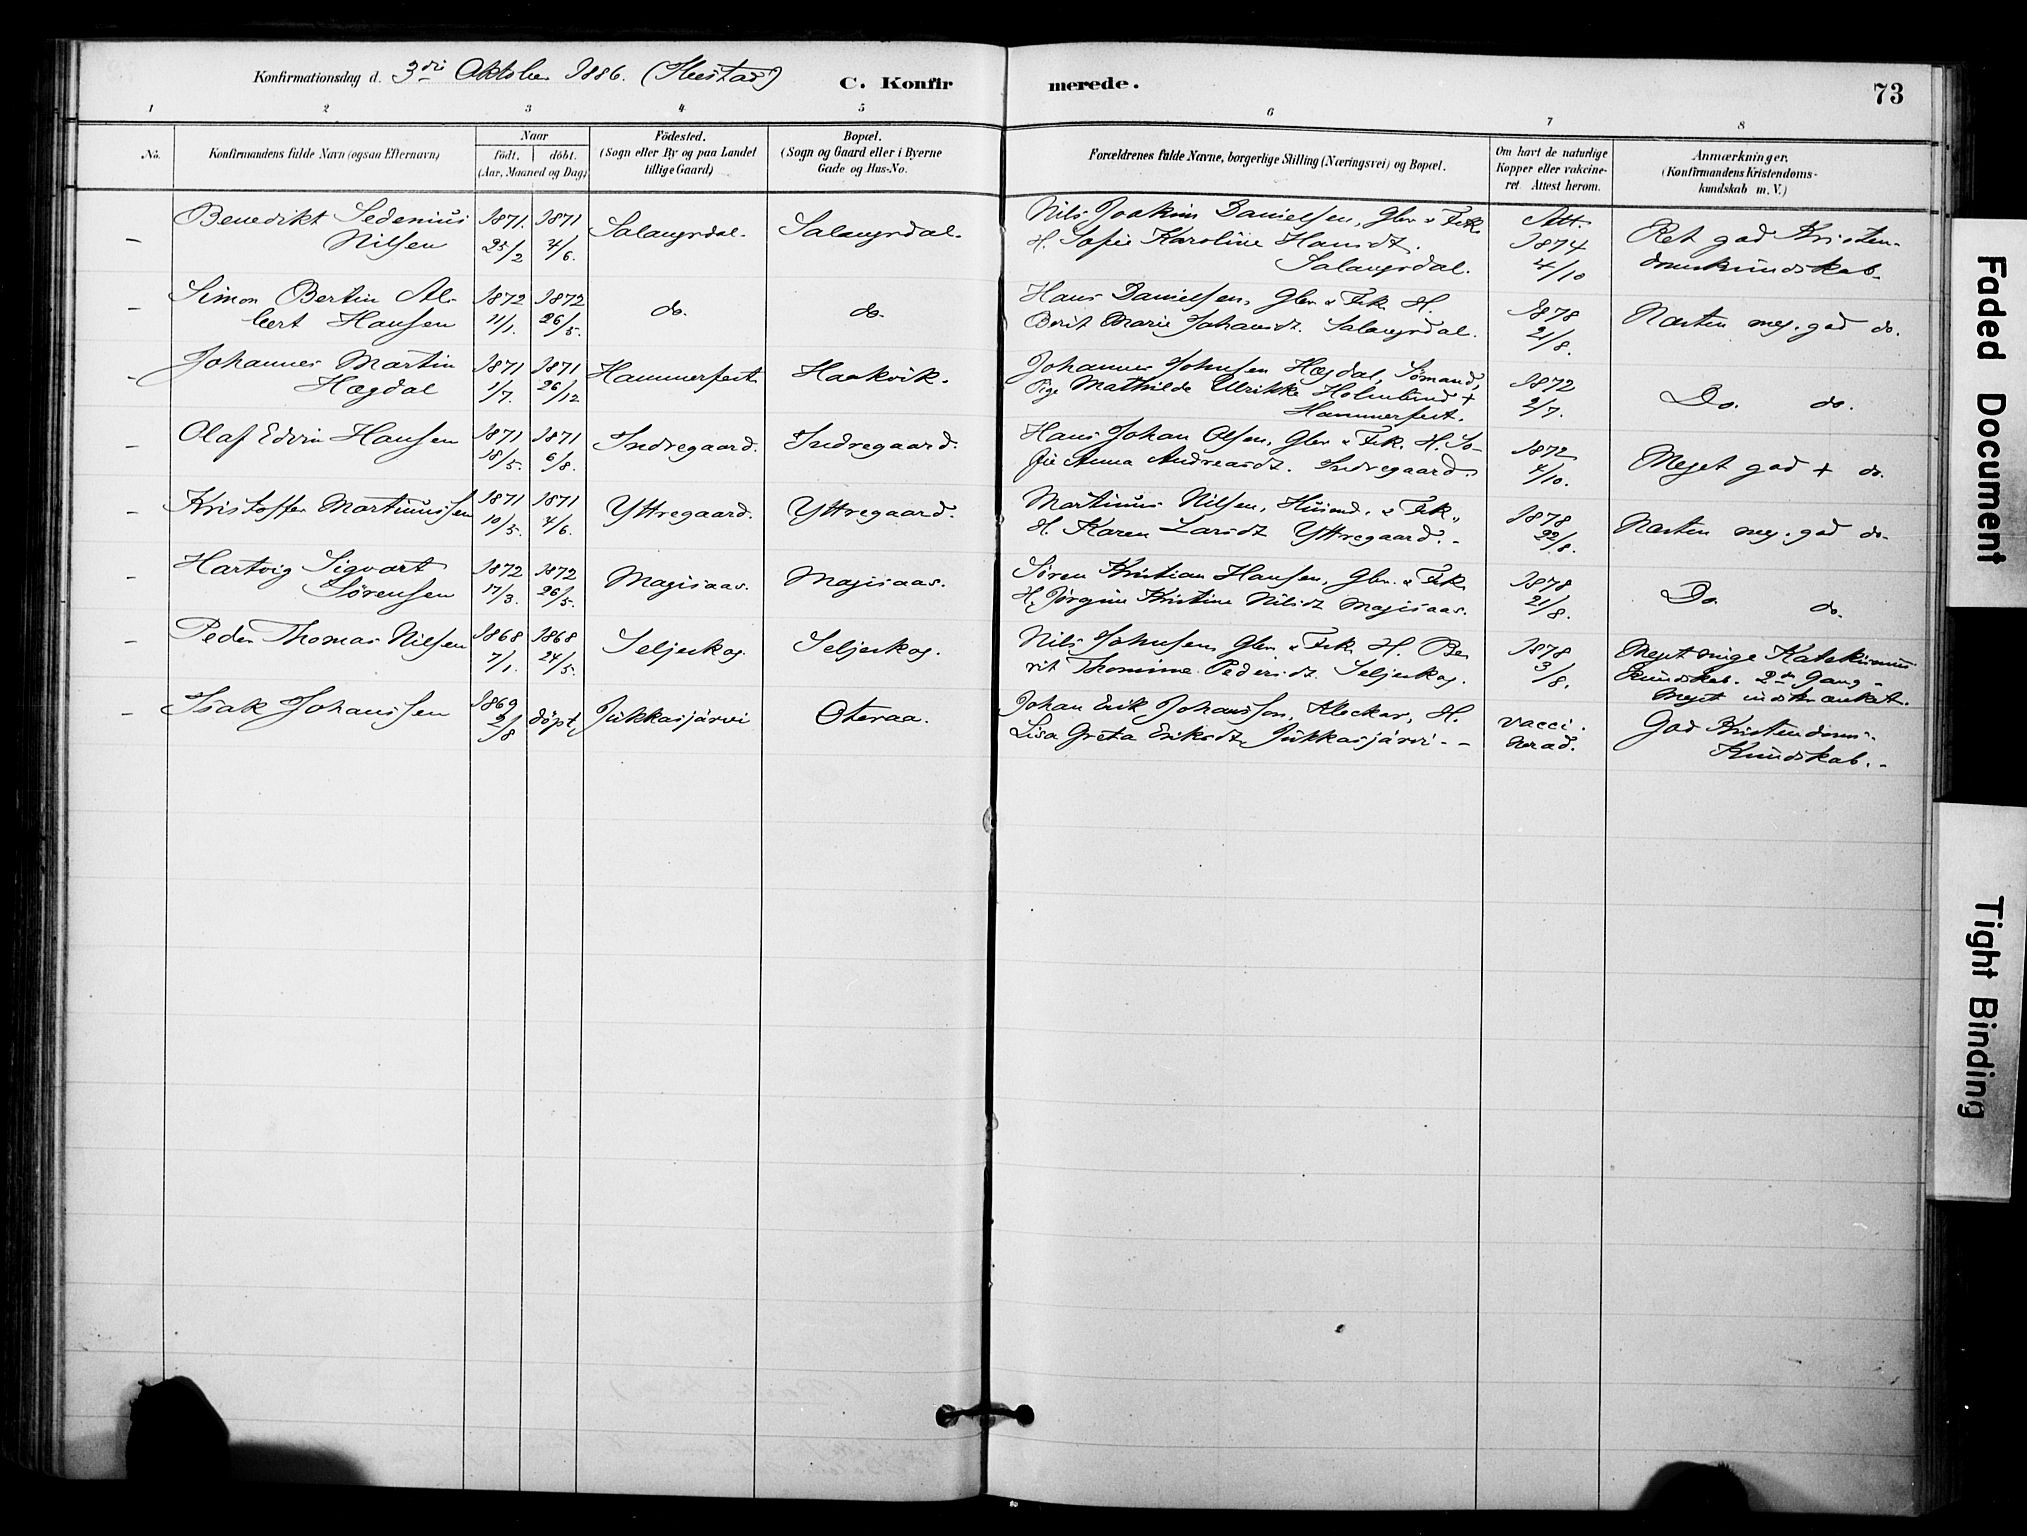 Konfirmationsdag d. 3die Oktober 1886.
C. Konfirmerede.
73
1 2 3 4 5 6 7 8
No.
Konfirmandens fulde Navn (ogsaa Efternavn)
Naar
födt. döbt.
(Aar, Maaned og Dag)
Födested.
(Sogn eller By og paa Landet
tillige Gaard)
Bopæl.
(Sogn og Gaard eller i Byerne
Gade og Hus-No.
Forældrenes fulde Navne, borgerlige Stilling (Næringsvei) og Bopæl.
Om havt de naturlige
Kopper eller vakcine-
ret. Attest herom.
Anmærkninger.
(Konfirmandens Kristendoms-
kundskab m. V.)
– Benedikt Sedenius 1871. 1871 Salangsdal. Salangsdal. Nils Joakim Danielsen, Gbr. & Frk. Att. Ret god Kristen-
Nilsen 25/2 4/6. H. Sofie Karoline Hansdt. 1874 domskundskab.
Salangsdal. 4/10
– Simon Bertin Al- 1872 1872 do. do. Hans Danielsen, Gbr. & Frk. H. 1878 Næsten meg. god do.
bert Hansen 11/1. 26/5. Berit Marie Johansdt. Salangsdal. 21/8.
– Johannes Martin 1871 1871 Hammerfest Haakvik. Johannes Johnsen Hægdal, Sömand, 1872 Do. do.
Hægdal 1/7. 26/12 Pige Mathilde Ulrikke Holmlund + 2/7.
Hammerfest.
– Olaf Edvin Hansen 1871 1871 Indregaard. Indregaard. Hans Johan Olsen, Gbr. & Frk. H. So- 1872 Meget god + do.
18/5. 6/8. fie Anna Andreasdt. Indregaard. 4/10.
– Kristoffer Martinussen 1871 1871 Yttregaard. Yttregaard. Martinus Nilsen, Husmd. & Frk., 1878 Næsten meg. god do.
10/5. 4/6. H. Karen Larsdt Yttregaard. - 22/8.
– Hartvig Sigvart 1872 1872 Magisaas. Magisaas. Sören Kristian Hansen, Gbr. & Frk. 1878 Do. do.
Sörensen 17/3. 26/5. H. Jörgine Kristine Nilsdt Magisaas. 21/8.
– Peder Thomas Nilsen 1868 1868 Seljeskog. Seljeskog. Nils Johnsen Gbr. & Frk. H. Be- 1878 Meget ringe Katekismus
7/1. 24/5. rit Thomine Pedersdt. Seljeskog. 3/8. kundskab. 2den Gang -
Meget indskrænket.
– Isak Johanssen 1869 döpt Jukkasjärvi Oteraa. Johan Erik Johansson, Klockar, H. vacci- God Kristendoms-
2/8 Lisa Greta Eriksdt. Jukkasjärvi. - nerad. Kundskab. -
Faded Document
Tight Binding